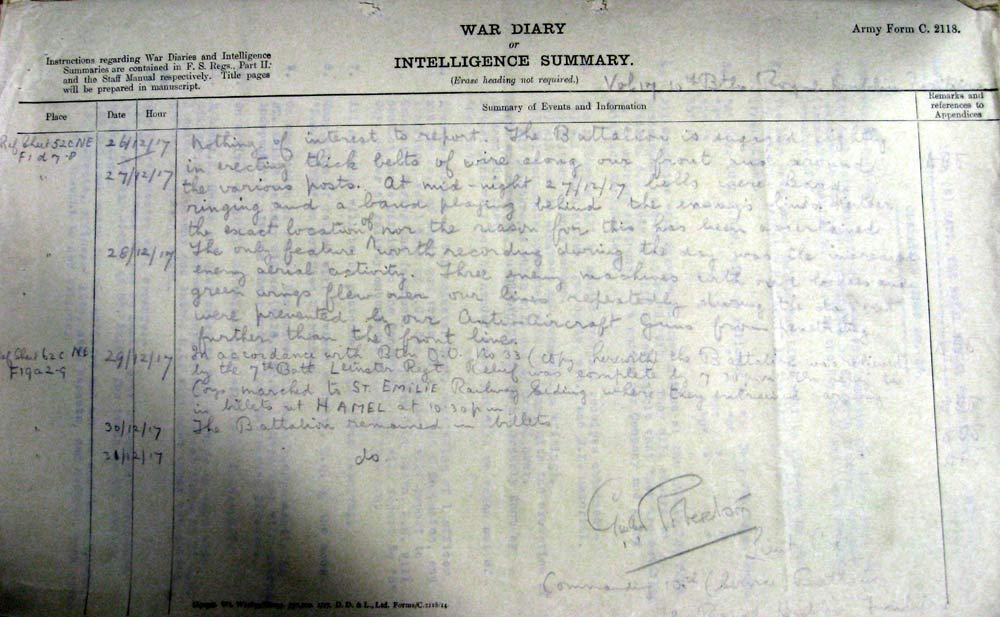 WAR DIARY
or
INTELLIGENCE SUMMARY.
(Erase heading not required.)
Army Form C. 2118.
Instructions regarding War Diaries and Intelligence
Summaries are contained in F. S. Regs., Part II.
and the Staff Manual respectively. Title pages
will be prepared in manuscript.
Place
Date
Hour
Summary of Events and Information
Remarks and
references to
Appendices
26/12/17 Nothing of interest to report. The Battalion is engaged nightly
in erecting thick belts of wire along our front and around
27/12/17 the various posts. At mid-night 27/12/17 bells were heard
ringing and a band playing behind the enemy's lines. Neither
the exact location of nor the reason for this has been ascertained
28/12/17 The only feature worth recording during the day was the increased
enemy aerial activity. Three enemy machines with red bodies and
green wings flew over our lines repeatedly during the day but
were prevented by our Anti-Aircraft Guns from penetrating
further than the front line.
Ref Sheet 62C NE
F19a2-9
29/12/17 In accordance with Bttn O.O. No 33 (copy herewith) the Battalion was relieved
by the 7th Batt Leinster Regt. Relief was complete by 7
Coys marched to ST. EMILIE Railway Siding where they entrained
in billets at HAMEL at 10.30 pm
30/12/17 The Battalion remained in billets
31/12/17 do.
Commanding (Service)
D. D. & L., Ltd. Forms/C.2118/14.